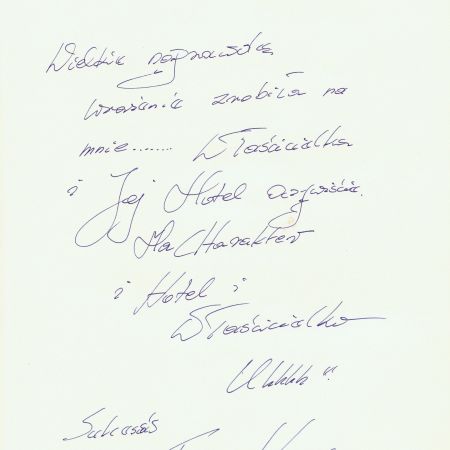 Wielkie naprawdę
wrażenie zrobiła na
mnie........ Właścicielka
i Jej Hotel oczywiście.
Ma CHarakter
i Hotel i
Właścicielka
Ukkkk".